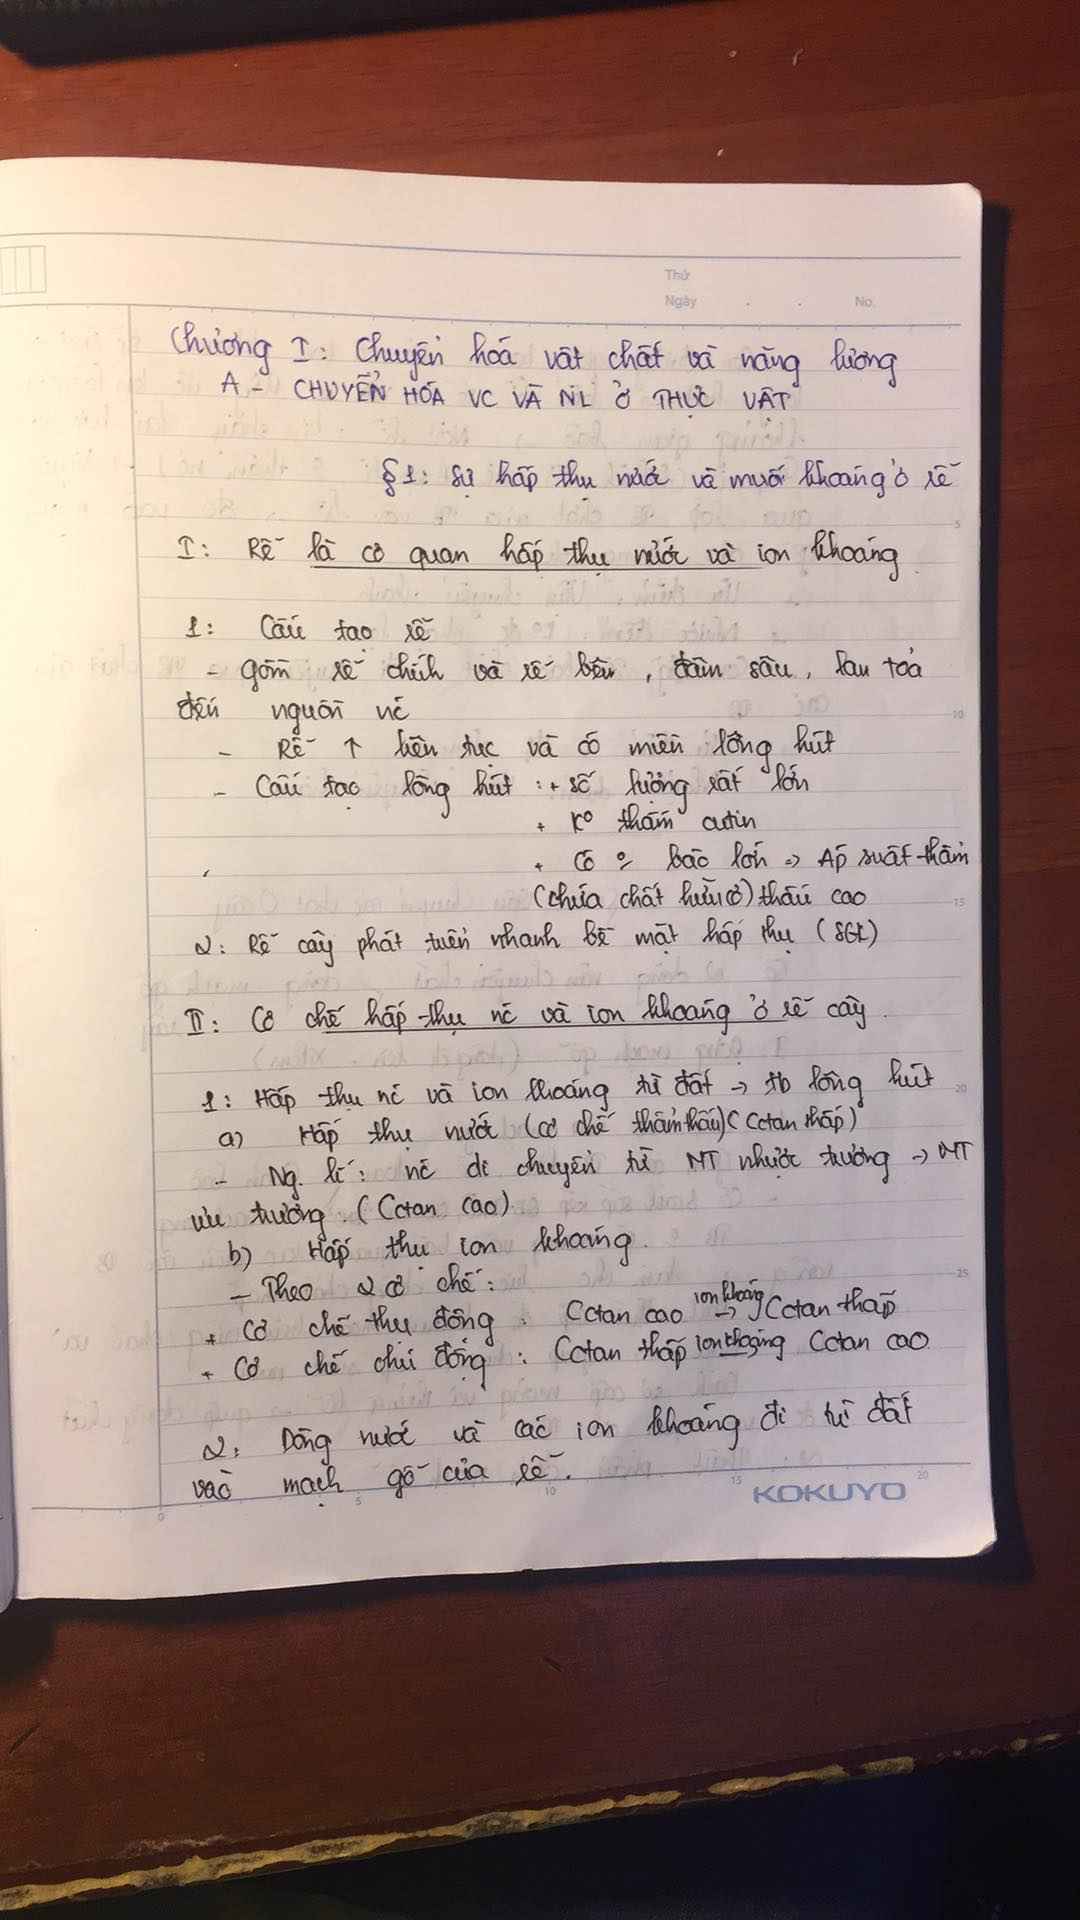 Thứ
Ngày . . No.
Chương I: Chuyển hoá vật chất và năng lượng
A - CHUYỂN HÓA VC VÀ NL Ở THỰC VẬT
§1: Sự hấp thụ nước và muối khoáng ở rễ
I: Rễ là cơ quan hấp thụ nước và ion khoáng
1: Cấu tạo rễ
- gồm rễ chính và rễ bên, đâm sâu, lan toả
đến nguồn nc
- Rễ ↑ liên tục và có miền lông hút
- Cấu tạo lông hút : + số lượng rất lớn
+ K° thấm cutin
+ Có % bào lớn => Áp suất thẩm
(chứa chất hữu cơ) thấu cao
2: Rễ cây phát triển nhanh bề mặt hấp thụ (SGK)
II: Cơ chế hấp thụ nc và ion khoáng ở rễ cây.
1: Hấp thụ nc và ion khoáng từ đất → tb lông hút
a) Hấp thụ nước (cơ chế thẩm thấu) (Cctan thấp)
- Ng. lí: nc di chuyển từ MT nhược trương → MT
ưu trương. (Cctan cao)
b) Hấp thụ ion khoáng.
- Theo 2 cơ chế:
+ Cơ chế thụ động : Cctan cao ion khoáng → Cctan thấp
+ Cơ chế chủ động : Cctan thấp ion khoáng Cctan cao
2: Dòng nước và các ion khoáng đi từ đất
vào mạch gỗ của rễ.
5
10
15
20
25
0 5 10 15 20
KOKUYO